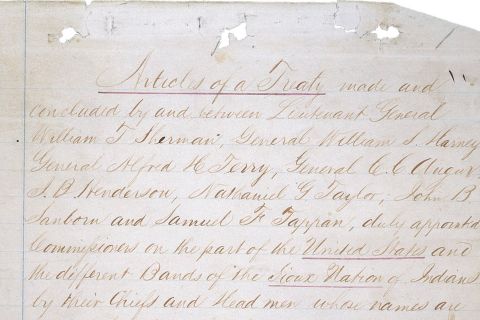 Articles of a Treaty made and
concluded by and between Lieutenant General
William T. Sherman, General William S. Harney
General Alfred H. Terry, General C. C. Augur.
J. B. Henderson, Nathaniel G. Taylor, John B
Sanborn and Samuel F. Tappan, duly appointed
Commissioners on the part of the United States and
the different Bands of the Sioux Nation of Indians
by their Chiefs and Head men whose names are